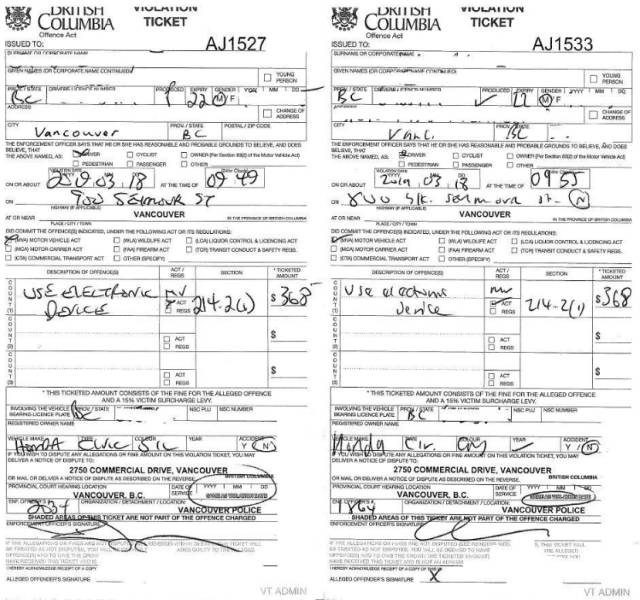 BRITISH COLUMBIA
VIOLATION TICKET
Offence Act
ISSUED TO:
AJ1527
SURNAME OR CORPORATE NAME
GIVEN NAMES (OR CORPORATE NAME CONTINUED)
YOUNG PERSON
PROV / STATE DRIVERS LICENCE NUMBER PRODUCED EXPIRY GENDER YYYY MM DD
BC 22 M F
ADDRESS
CHANGE OF ADDRESS
CITY PROV / STATE POSTAL / ZIP CODE
Vancouver BC
THE ENFORCEMENT OFFICER SAYS THAT HE OR SHE HAS REASONABLE AND PROBABLE GROUNDS TO BELIEVE, AND DOES BELIEVE, THAT
THE ABOVE NAMED, AS: DRIVER CYCLIST OWNER (Per Section 83(2) of the Motor Vehicle Act)
PEDESTRIAN PASSENGER OTHER
VIOLATION DATE
ON OR ABOUT 2019 03 18 AT THE TIME OF 09:49
900 SEYMOUR ST
HIGHWAY (IF APPLICABLE)
AT OR NEAR VANCOUVER IN THE PROVINCE OF BRITISH COLUMBIA
PLACE / CITY / TOWN
DID COMMIT THE OFFENCE(S) INDICATED, UNDER THE FOLLOWING ACT OR ITS REGULATIONS:
(MVA) MOTOR VEHICLE ACT (WLA) WILDLIFE ACT (LCA) LIQUOR CONTROL & LICENCING ACT
(MCA) MOTOR CARRIER ACT (FAA) FIREARM ACT (TCR) TRANSIT CONDUCT & SAFETY REGS.
(CTA) COMMERCIAL TRANSPORT ACT OTHER (SPECIFY)
DESCRIPTION OF OFFENCE(S) ACT / REGS SECTION * TICKETED AMOUNT
COUNT (1) USE ELECTRONIC DEVICE MV ACT REGS 214.2(1) $368
COUNT (2) ACT REGS $
COUNT (3) ACT REGS $
* THIS TICKETED AMOUNT CONSISTS OF THE FINE FOR THE ALLEGED OFFENCE
AND A 15% VICTIM SURCHARGE LEVY.
INVOLVING THE VEHICLE BEARING LICENCE PLATE PROV / STATE NSC PLU NSC NUMBER
BC
REGISTERED OWNER NAME
VEHICLE MAKE TYPE COLOUR YEAR ACCIDENT
HONDA CIVIC Y N
IF YOU WISH TO DISPUTE ANY ALLEGATIONS OR FINE AMOUNT ON THIS VIOLATION TICKET, YOU MAY
DELIVER A NOTICE OF DISPUTE TO:
2750 COMMERCIAL DRIVE, VANCOUVER
BRITISH COLUMBIA
OR MAIL OR DELIVER A NOTICE OF DISPUTE AS DESCRIBED ON THE REVERSE.
PROVINCIAL COURT HEARING LOCATION DATE OF SERVICE YYYY MM DD
VANCOUVER, B.C.
ENF. OFFICER # ORGANIZATION / DETACHMENT / LOCATION:
VANCOUVER POLICE
SHADED AREAS OF THIS TICKET ARE NOT PART OF THE OFFENCE CHARGED
ENFORCEMENT OFFICER'S SIGNATURE
ALLEGED OFFENDER'S SIGNATURE
VT ADMIN
BRITISH COLUMBIA
VIOLATION TICKET
Offence Act
ISSUED TO:
AJ1533
SURNAME OR CORPORATE NAME
GIVEN NAMES (OR CORPORATE NAME CONTINUED)
YOUNG PERSON
PROV / STATE DRIVERS LICENCE NUMBER PRODUCED EXPIRY GENDER YYYY MM DD
BC 22 M F
ADDRESS
CHANGE OF ADDRESS
CITY PROV / STATE POSTAL / ZIP CODE
Vanc. BC
THE ENFORCEMENT OFFICER SAYS THAT HE OR SHE HAS REASONABLE AND PROBABLE GROUNDS TO BELIEVE, AND DOES BELIEVE, THAT
THE ABOVE NAMED, AS: DRIVER CYCLIST OWNER (Per Section 83(2) of the Motor Vehicle Act)
PEDESTRIAN PASSENGER OTHER
VIOLATION DATE
ON OR ABOUT 2019 03 18 AT THE TIME OF 09 55
800 blk. Seymour St. N
HIGHWAY (IF APPLICABLE)
AT OR NEAR VANCOUVER IN THE PROVINCE OF BRITISH COLUMBIA
PLACE / CITY / TOWN
DID COMMIT THE OFFENCE(S) INDICATED, UNDER THE FOLLOWING ACT OR ITS REGULATIONS:
(MVA) MOTOR VEHICLE ACT (WLA) WILDLIFE ACT (LCA) LIQUOR CONTROL & LICENCING ACT
(MCA) MOTOR CARRIER ACT (FAA) FIREARM ACT (TCR) TRANSIT CONDUCT & SAFETY REGS.
(CTA) COMMERCIAL TRANSPORT ACT OTHER (SPECIFY)
DESCRIPTION OF OFFENCE(S) ACT / REGS SECTION * TICKETED AMOUNT
COUNT (1) Use electronic device MV ACT REGS 214.2(1) $368
COUNT (2) ACT REGS $
COUNT (3) ACT REGS $
* THIS TICKETED AMOUNT CONSISTS OF THE FINE FOR THE ALLEGED OFFENCE
AND A 15% VICTIM SURCHARGE LEVY.
INVOLVING THE VEHICLE BEARING LICENCE PLATE PROV / STATE NSC PLU NSC NUMBER
BC
REGISTERED OWNER NAME
VEHICLE MAKE TYPE COLOUR YEAR ACCIDENT
Honda Civ Y N
IF YOU WISH TO DISPUTE ANY ALLEGATIONS OR FINE AMOUNT ON THIS VIOLATION TICKET, YOU MAY
DELIVER A NOTICE OF DISPUTE TO:
2750 COMMERCIAL DRIVE, VANCOUVER
BRITISH COLUMBIA
OR MAIL OR DELIVER A NOTICE OF DISPUTE AS DESCRIBED ON THE REVERSE.
PROVINCIAL COURT HEARING LOCATION DATE OF SERVICE YYYY MM DD
VANCOUVER, B.C.
ENF. OFFICER # ORGANIZATION / DETACHMENT / LOCATION:
1864 VANCOUVER POLICE
SHADED AREAS OF THIS TICKET ARE NOT PART OF THE OFFENCE CHARGED
ENFORCEMENT OFFICER'S SIGNATURE
ALLEGED OFFENDER'S SIGNATURE X
VT ADMIN